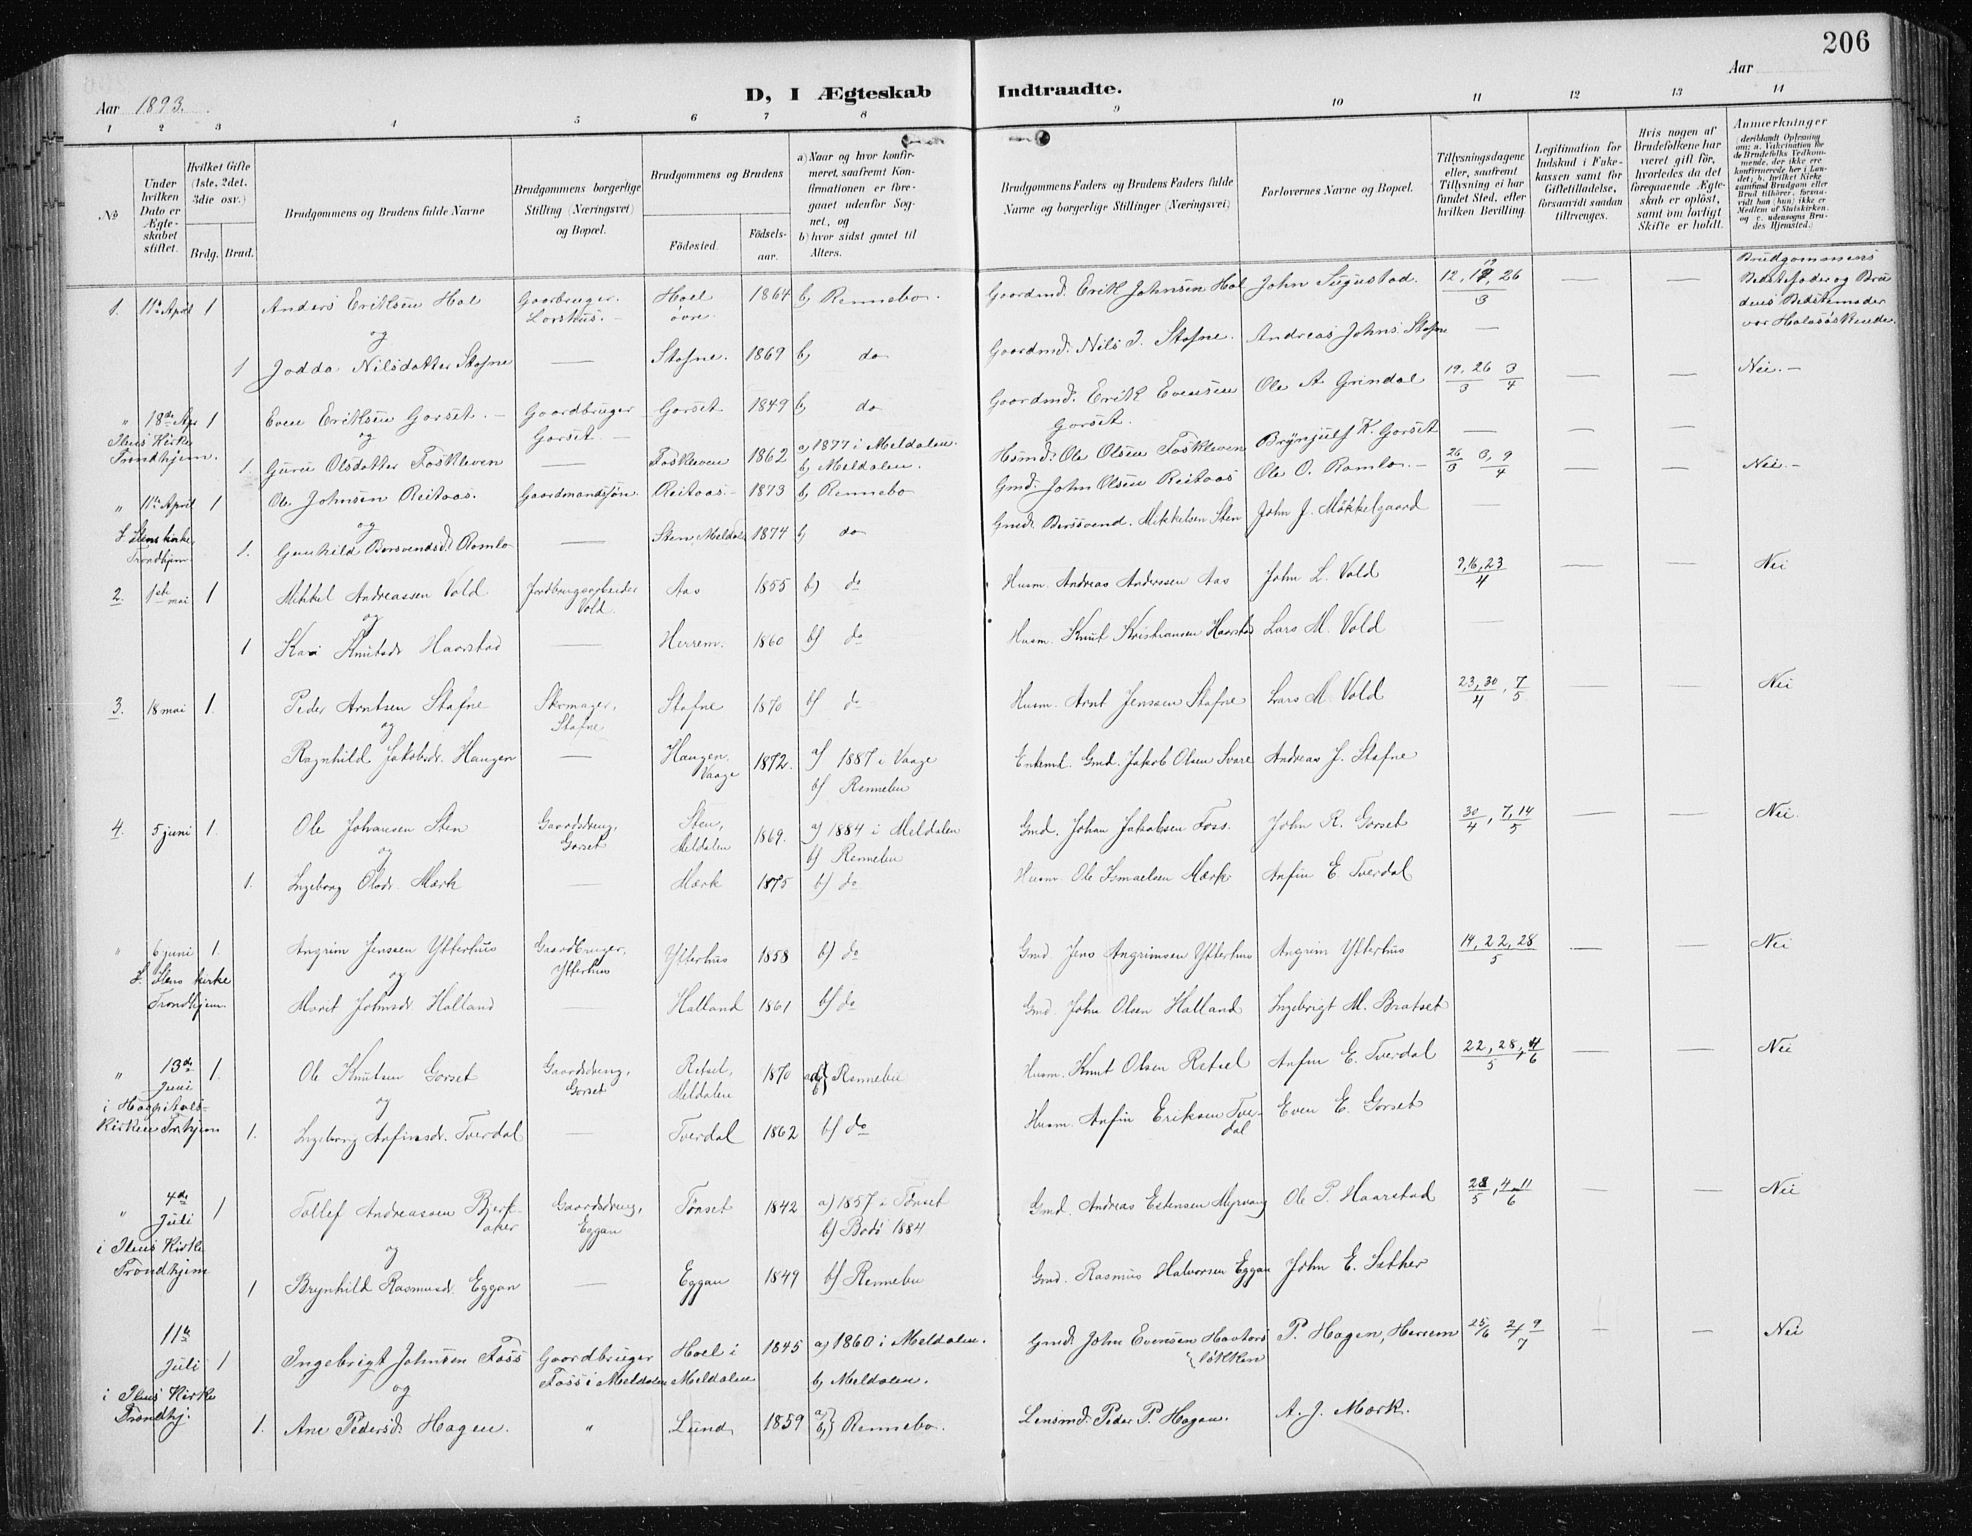 206
Aar 1893.
D, I Ægteskab Indtraadte.
Aar
1 2 3 4 5 6 7 8 9 10 11 12 13 14
No
Under hvilken Dato er Ægteskabet stiftet.
Hvilket Gifte (1ste, 2det, 3die osv.)
Brdg. Brud.
Brudgommens og Brudens fulde Navne
Brudgommens borgerlige Stilling (Næringsvei) og Bopæl.
Brudgommens og Brudens
Födested. Födselsaar.
a) Naar og hvor konfirmeret, saafremt Konfirmationen er foregaaet udenfor Sognet, og
b) hvor sidst gaaet til Alters.
Brudgommens Faders og Brudens Faders fulde Navne og borgerlige Stillinger (Næringsvei)
Forlovernes Navne og Bopæl.
Tillysningsdagene eller, saafremt Tillysning ei har fundet Sted, efter hvilken Bevilling.
Legitimation for Indskud i Enkekassen samt for Giftetilladelse, forsaavidt saadan tiltrænges.
Hvis nogen af Brudefolkene har været gift för, hvorledes da det foregaaende Ægteskab er oplöst, samt om lovligt Skifte er holdt.
Anmærkninger (deriblandt Oplysning om: a. Vakcination for de Brudefolks Vedkommende, der ikke ere konfirmerede her i Landet; b. hvilket Kirkesamfund Brudgom eller Brud tilhörer, forsaavidt han (hun) ikke er Medlem af Statskirken og c. udensogns Brudes Hjemsted.)
1. 11te April 1 Anders Eriksen Hol Gaardbruger. Hoel 1864 b) Rennebo. Gaardmd. Erik Johnsen Hol John Sugustad. 12, 19, 26 — — Brudgommens
Lorshus. øvre. 3 Bedstefader og Bru
og dens Bedstemoder
1 Jodda Nilsdatter Stafne — Stafne. 1869 b) do Gaardmd. Nils J. Stafne. Andreas Johns. Stafne — var Halvsøskende.
" 18de Apr 1 Even Eriksen Gorset. Gaardbruger Gorset 1849 b) do Gaardmd. Erik Evensen Ole A. Grindal 19, 26 3 — — Nei.
Ilens Kirke og Gorset. Gorset. 3 4
Trondhjem. 1. Guru Olsdatter Foskleven — Foskleven 1862 a) 1877 i Meldalen. Hsmd. Ole Olsen Foskleven Brynjulf K. Gorset —
b) Meldalen.
" 11te April 1 Ole Johnsen Reitaas. Gaardmandssøn. Reitaas. 1873 b) Rennebo Gmd. John Olsen Reitaas Ole O. Ramlo. 26 3, 9 — — Nei.
I Ilens kirke, og 3 4
Trondhjem 1. Gunhild Borsvendsd. Ramlo — Sten, Meldal 1874 b) do Gmd. Berssvend. Mikkelsen Sten John J. Mökkelgaard —
2. 1ste mai 1 Mikkel Andreassen Vold Jordbrugsarbeider Aas 1855 b) do Husm. Andreas Anderssen Aas John L. Vold 9, 16, 23 — — Nei
og Vold 4
1 Kari Knutsdr Haarstad — Herrem. 1860 b) do Husm. Knut Kristiansen Haarstad Lars M. Vold —
3. 18 mai 1. Peder Arntsen Stafne Skomager, Stafne 1870 b) do Husm. Arnt Jenssen Stafne Lars M. Vold 23, 30 7 — — Nei
og Stafne 4 5
Ragnhild Jakobsdr. Haugen — Haugen, Vaage 1872. a) 1887 i Vaage Enkeml. Gmd. Jakob Olsen Svare Andreas J. Stafne
b) Rennebu
4. 5 juni 1. Ole Johansen Sten Gaardsdreng, Sten, 1869. a) 1884 i Meldalen Gmd. Johan Jakobsen Foss. John R. Gorset 30 7, 14 — — Nei.
og Gorset Meldalen b) Rennebu 4 5
1. Ingeborg Olsdr. Mærk — Mærk 1875 b) do Husm. Ole Ismaelsen Mærk. Anfin E. Tverdal
" 6 juni 1. Angrim Jenssen Ytterhus Gaardbruger, Ytterhus 1858 b) do Gmd. Jens Angrimsen Ytterhus Angrim Ytterhus 14, 22, 28 — — Nei
I. Ilens kirke og Ytterhus 5
Trondhjem. Marit Johnsdr. Halland — Halland 1861 b) do Gmd. John Olsen Halland Ingebrigt M. Bratset
" 13de Juni 1. Ole Knutsen Gorset Gaardsdreng, Retsel, 1870 a) b) Rennebu Husm. Knut Olsen Retsel Anfin E. Tverdal 22, 28, 4 — — Nei
i Hospitals- og Gorset Meldalen 5 6
Kirken Trhjem 1. Ingeborg Anfinsdr. Tverdal — Tverdal 1862 b) do Husm. Anfin Eriksen Tverdal Even E. Gorset
" 4de Juli 1 Tollef Andreassen Bjerkaker Gaardsdreng, Tønset 1842 a) 1857 i Tønset Gmd. Andreas Estensen Myrvang Ole P. Haarstad 28 4, 11 — — Nei
i Ilens Kirke og Eggan b) Bodö 1884 5 6
Trondhjem 1 Brynhild Rasmusdr. Eggan — Eggan 1849 b) Rennebu Gmd. Rasmus Halvorsen Eggan John E. Sæther
11te Juli 1 Ingebrigt Johnsen Foss Gaardbruger Hoel i 1845 a) 1860 i Meldalen. Gmd. John Evensen Havtorsløkken P. Hagen, Herrem 25/6 2 9/7 — — Nei
i Ilens Kirke og Foss i Meldalen Meldalen b) Meldalen.
Trondhj. 1. Ane Pedersd. Hagen. " Lund 1859 a) b) Rennebo. Lensmd. Peder P. Hagen. A. J. Mærk.